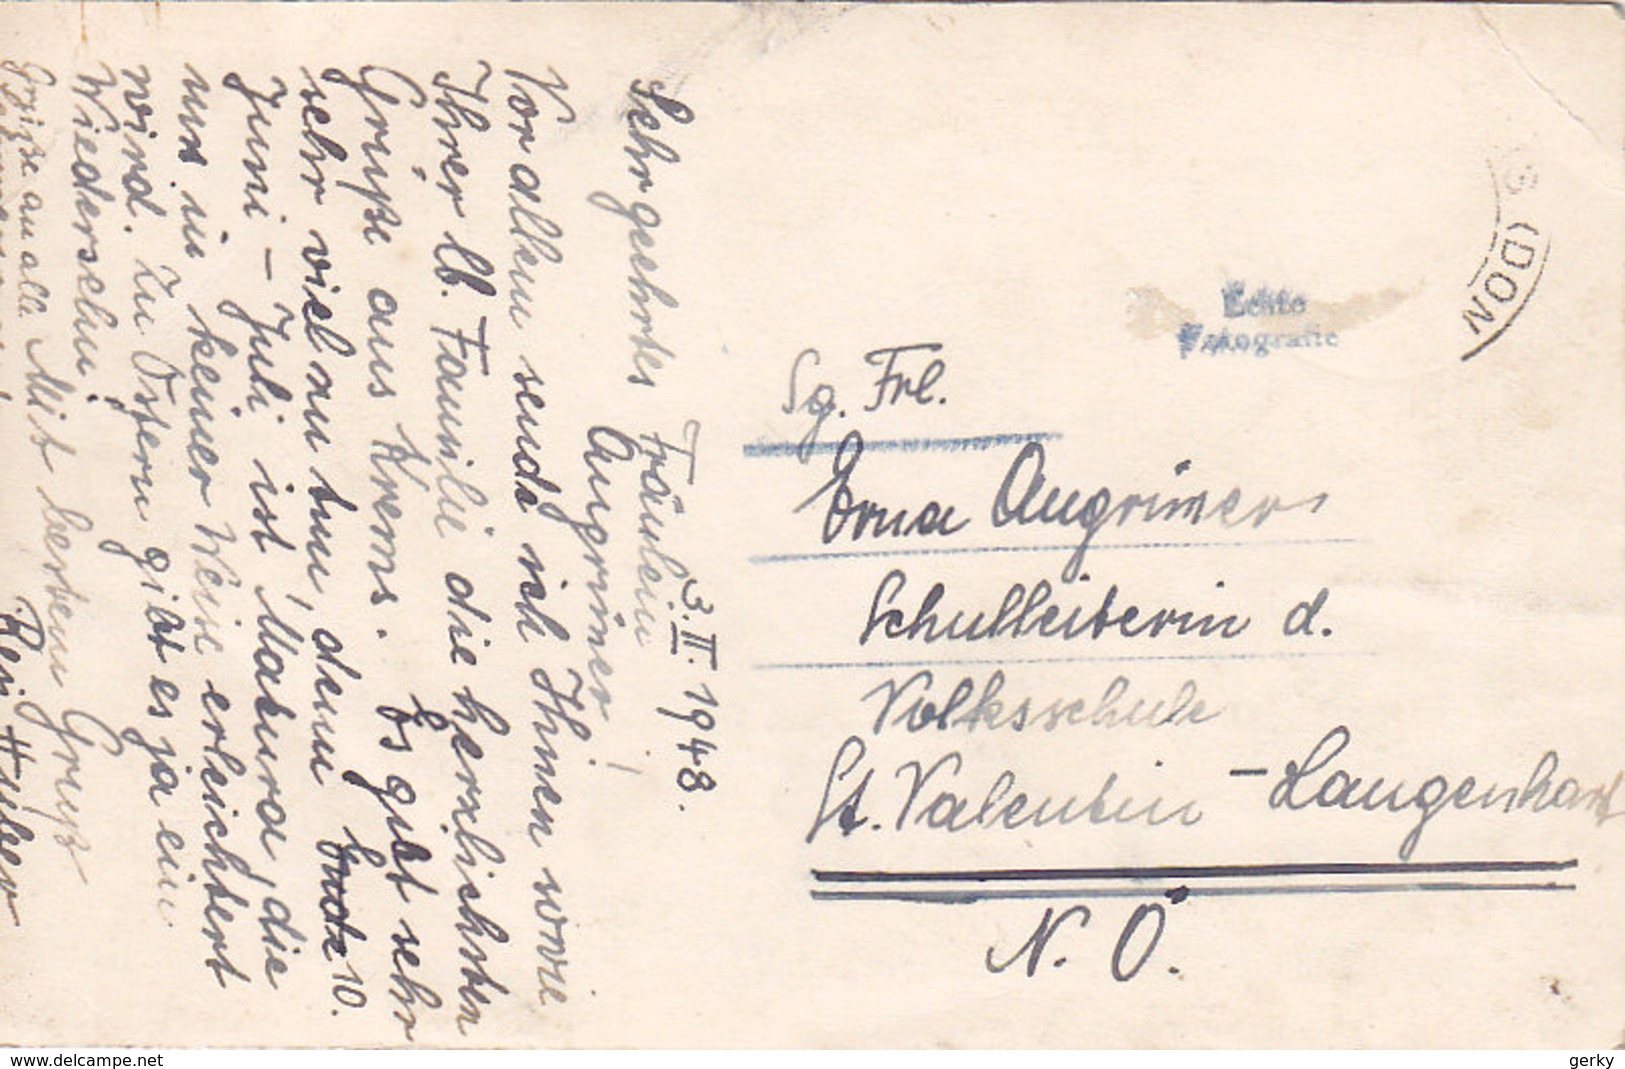 3.II.1948.
Sehr geehrtes Fräulein
Augriner!
Vor allem sende ich Ihnen sowie
Ihrer lb. Familie die herzlichsten
Grüße aus Krems. Es gibt sehr
sehr viel zu tun, denn Ende 10.
Juni - Juli ist Matura, die
uns in keiner Weise erleichtert
wird. Zu Ostern gibt es ja ein
Wiedersehn!
Mit bestem Gruß
Huber
Grüße an alle
S (DON
Echte
Fotografie
Sg. Frl.
Erna Augriner
Schulleiterin d.
Volksschule
St. Valentin - Langenhart
N. Ö.
www.delcampe.net
gerky